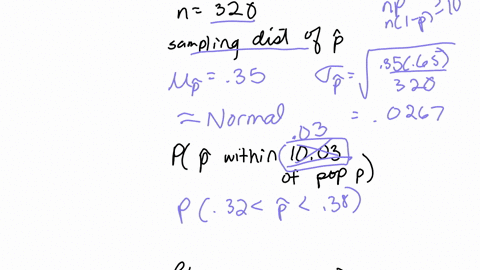 n = 320
np
n(1-p) ≥ 10
sampling dist of p̂
μp̂ = .35
σp̂ = √(.35(.65)/320)
≈ Normal
= .0267
.03
P( p̂ within 10.03
of pop p)
P(.32 < p̂ < .38)